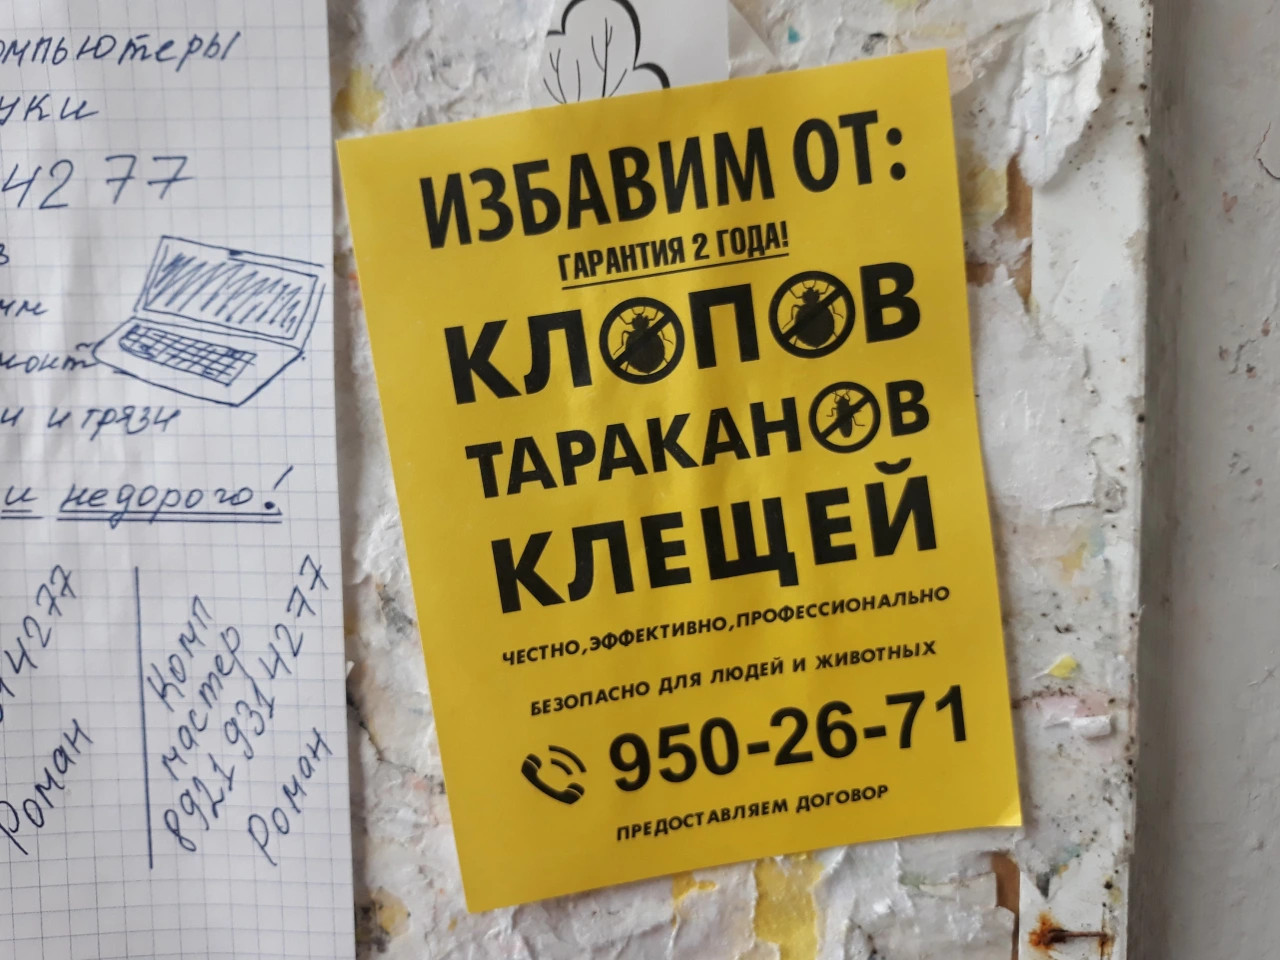 омпьютеры
уки
42 77
в
монт
и и грязи
и недорого!
44277
Роман
Комп
мастер
8921 931 4277
Роман
ИЗБАВИМ ОТ:
ГАРАНТИЯ 2 ГОДА!
КЛОПОВ
ТАРАКАНОВ
КЛЕЩЕЙ
ЧЕСТНО,ЭФФЕКТИВНО,ПРОФЕССИОНАЛЬНО
БЕЗОПАСНО ДЛЯ ЛЮДЕЙ И ЖИВОТНЫХ
950-26-71
ПРЕДОСТАВЛЯЕМ ДОГОВОР